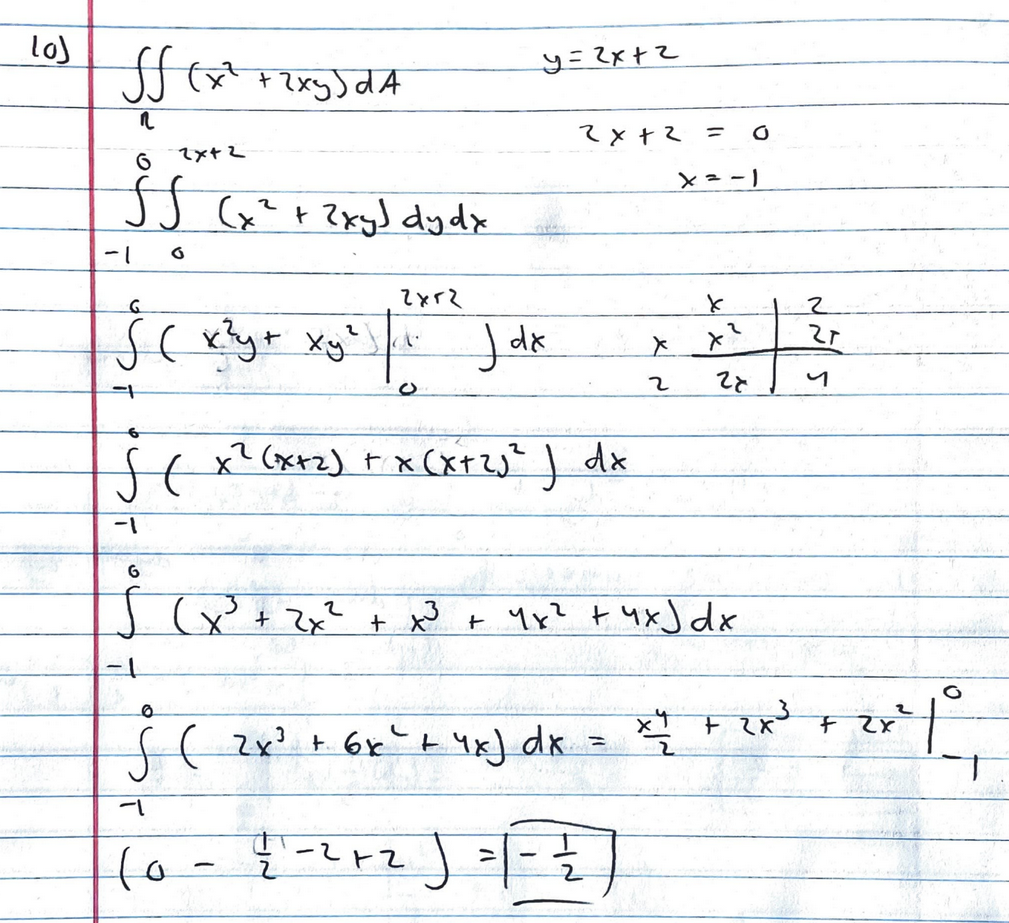 10) ∬_R (x² + 2xy) dA    y = 2x + 2
2x + 2 = 0
x = -1
∫_{-1}^{0} ∫_{0}^{2x+2} (x² + 2xy) dy dx
∫_{-1}^{0} ( x²y + xy² |_{0}^{2x+2} ) dx
x | 2
x x² | 2x
2 2x | 4
∫_{-1}^{0} ( x²(x+2) + x(x+2)² ) dx
∫_{-1}^{0} (x³ + 2x² + x³ + 4x² + 4x) dx
∫_{-1}^{0} ( 2x³ + 6x² + 4x) dx = x⁴/2 + 2x³ + 2x² |_{-1}^{0}
(0 - 1/2 - 2 + 2 ) = - 1/2